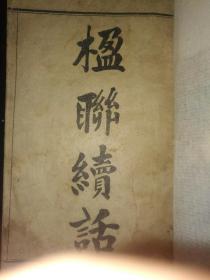 楹聯續話